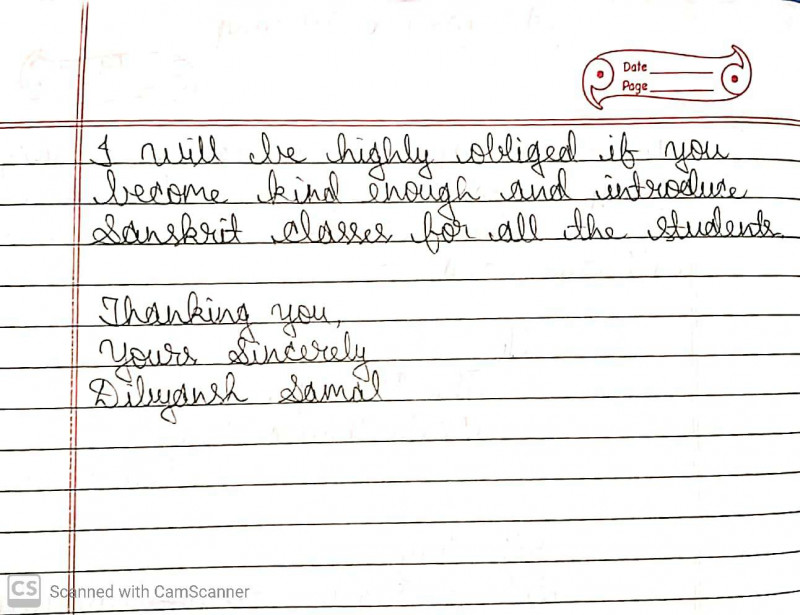 Date
Page
I will be highly obliged if you
become kind enough and introduce
Sanskrit classes for all the students.
Thanking you,
Yours Sincerely
Dibyansh Samal
CS Scanned with CamScanner